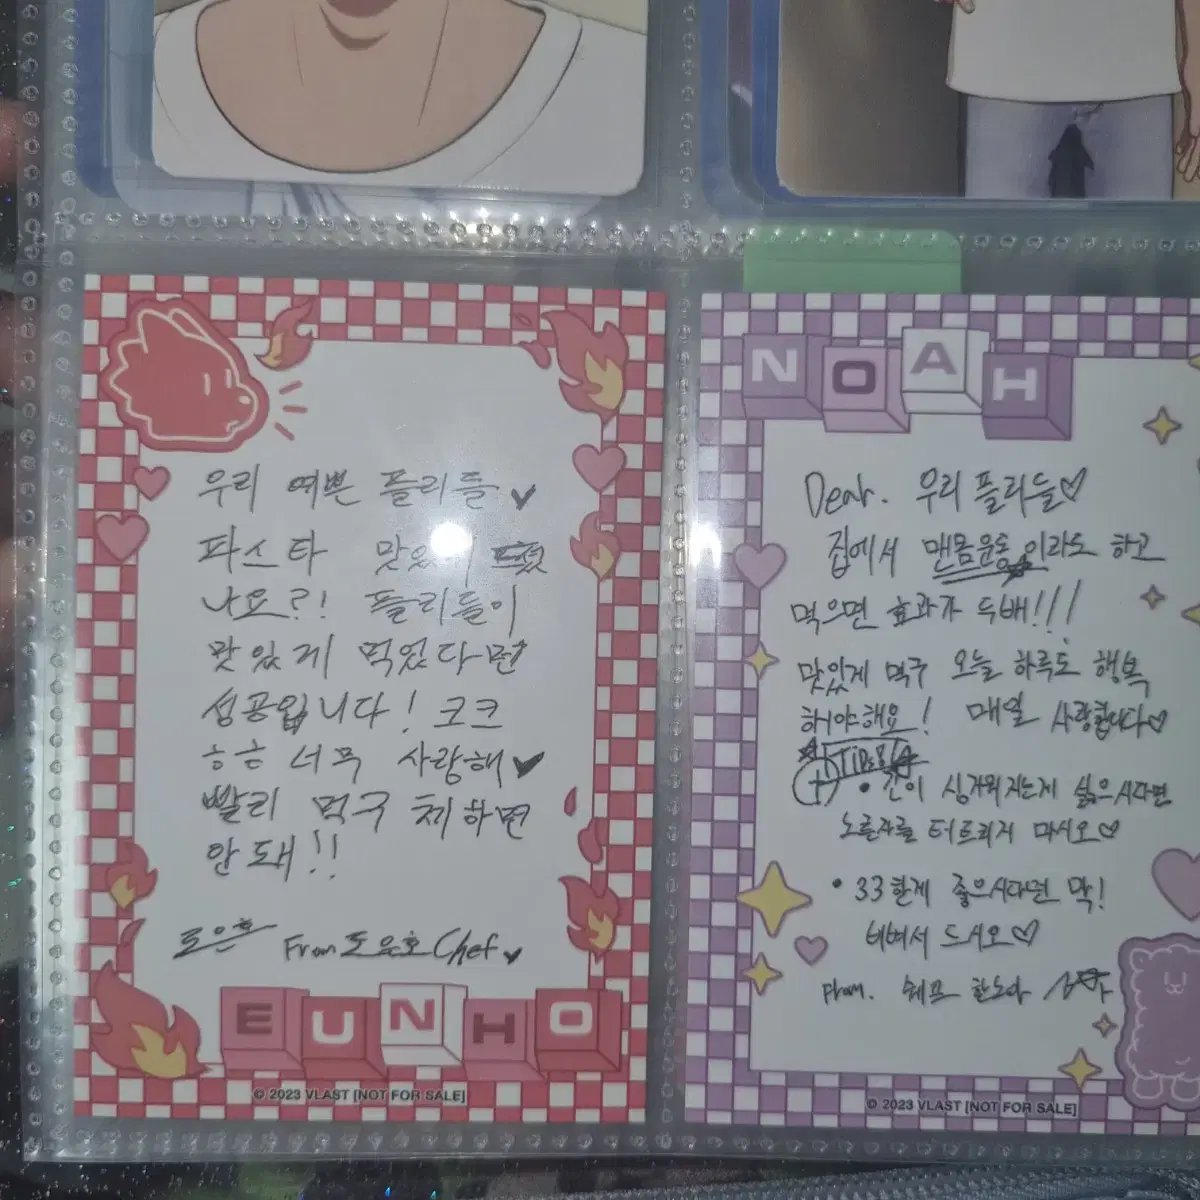 우리 예쁜 플리들
파스타 맛있게 드셨
나요?! 플리들이
맛있게 먹었다면
성공입니다! 크크
ㅎㅎ 너무 사랑해
빨리 먹구 체하면
안 돼!!
도은호 From 도은호 Chef
EUNHO
© 2023 VLAST [NOT FOR SALE]
NOAH
Dear. 우리 플리들♡
집에서 맨몸운동이라도 하고
먹으면 효과가 두배!!!
맛있게 먹구 오늘 하루도 행복
해야해요! 매일 사랑합니다♡
TIP
• 간이 싱거워지는게 싫으시다면
노른자를 터트리지 마시오♡
• 33한게 좋으시다면 막!
비벼서 드시오♡
From. 쉐프 한노아
© 2023 VLAST [NOT FOR SALE]